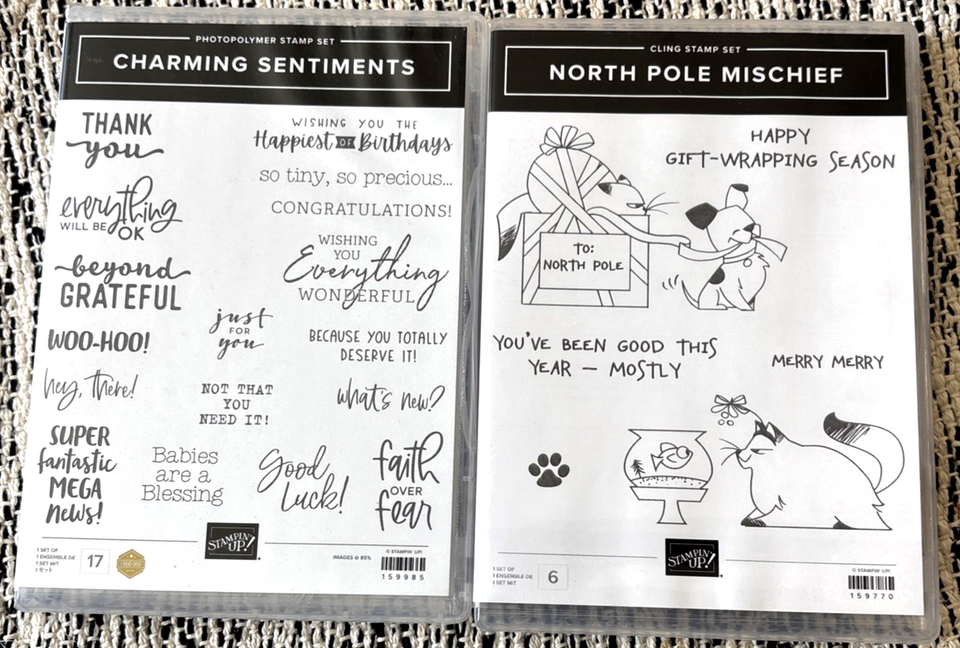 PHOTOPOLYMER STAMP SET
CHARMING SENTIMENTS
THANK
you
WISHING YOU THE
Happiest OF Birthdays
so tiny, so precious...
CONGRATULATIONS!
everything
WILL BE
OK
WISHING
YOU
Everything
WONDERFUL
beyond
GRATEFUL
just
FOR
you
WOO-HOO!
BECAUSE YOU TOTALLY
DESERVE IT!
hey, there!
NOT THAT
YOU
NEED IT!
what's new?
SUPER
fantastic
MEGA
news!
Babies
are a
Blessing
Good
Luck!
faith
OVER
fear
1 SET OF
1 ENSEMBLE DE
1 SET MIT
17
STAMPIN' UP!
IMAGES @ 85%
© STAMPIN' UP!
159985
CLING STAMP SET
NORTH POLE MISCHIEF
HAPPY
GIFT-WRAPPING SEASON
TO:
NORTH POLE
YOU'VE BEEN GOOD THIS
YEAR — MOSTLY
MERRY MERRY
1 SET OF
1 ENSEMBLE DE
1 SET MIT
6
STAMPIN' UP!
© STAMPIN' UP!
159770